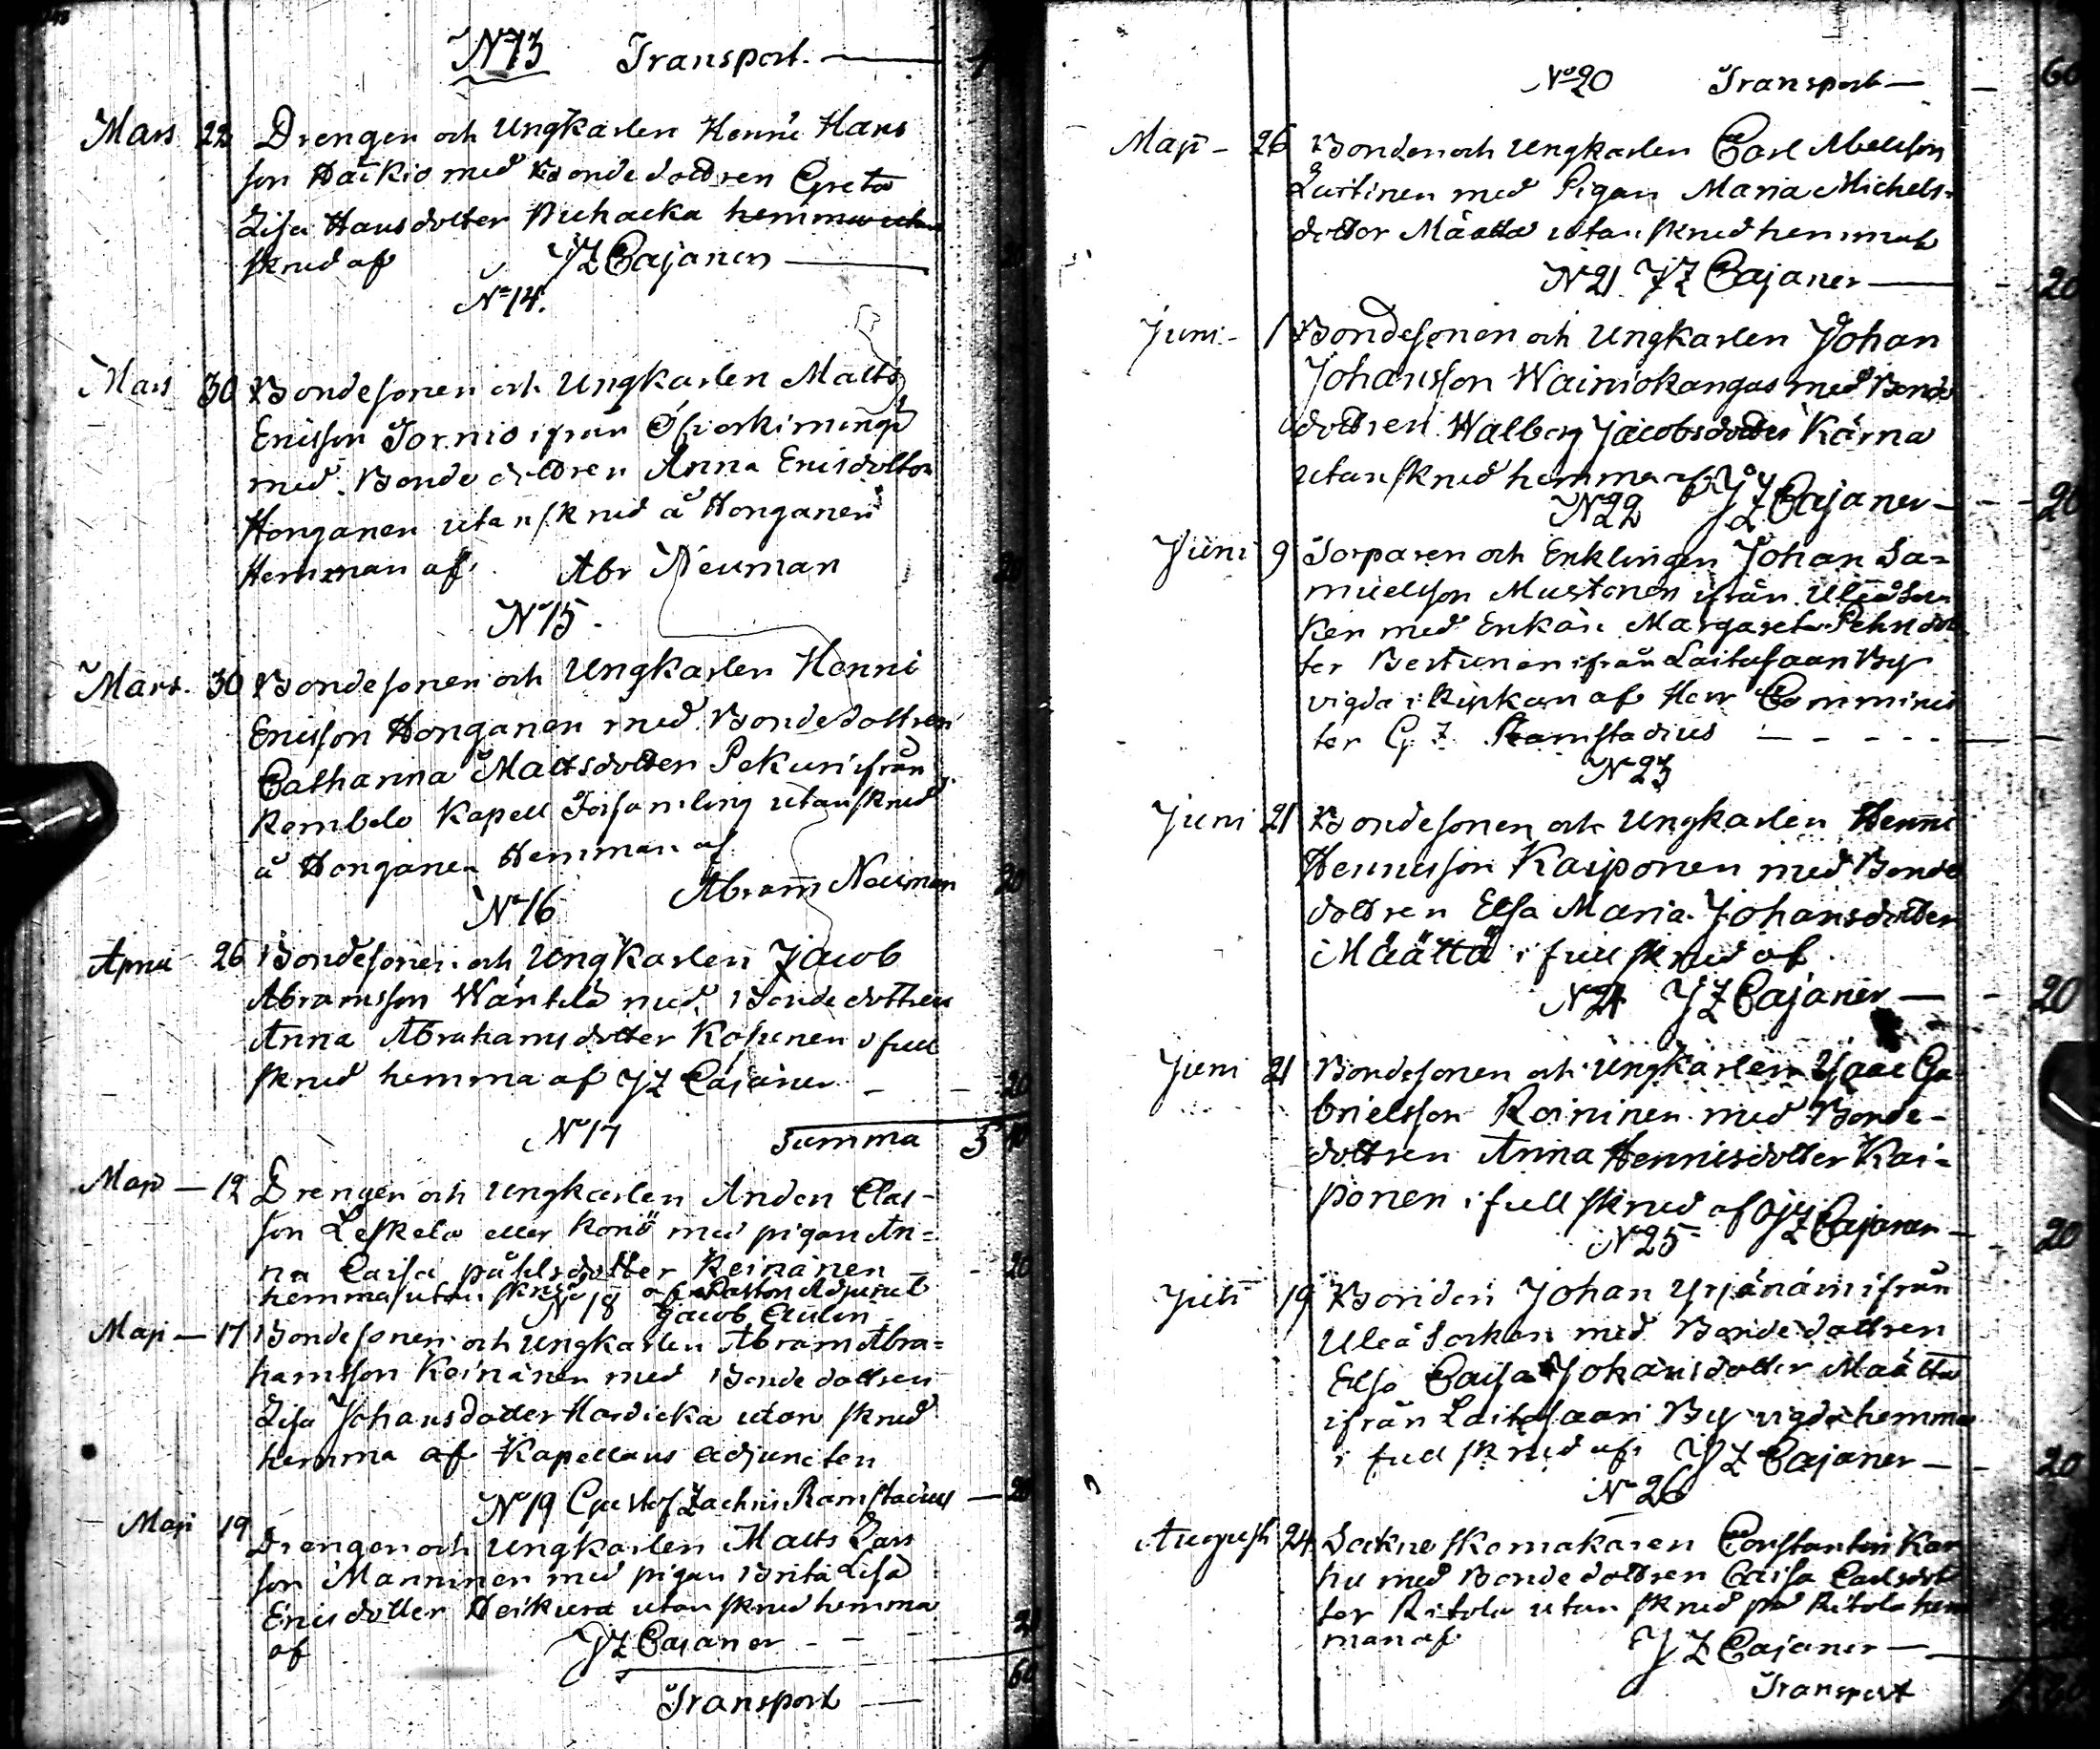 N73 Transport.
Mars 22 Drengen och Ungkarlen Henric Hans
son Häikiö med Bonde dottren Greta
Lisa Hansdotter Puhacka hemma utan
skrud af JZ Cajaner 20
N:14.
Mars 30 Bondesonen och Ungkarlen Matts
Ericsson Tornio ifrån Öfverkiminge
med Bonde dottren Anna Ericsdotter
Honganen utan skrud å Honganen
Hemman af Abr Neuman 20
N15.
Mars 30 Bondesonen och Ungkarlen Henric
Ericsson Honganen med Bondedottren
Catharina Mattsdotter Pekuri ifrån
Kembele Kapell Församling utan skrud
å Honganen Hemman af
Abram Neuman 20
N16
April 26 Bondesonen och Ungkarlen Jacob
Abramsson Wäntilä med Bonde dottren
Anna Abrahamsdotter Kopsinen i full
skrud hemma af JZ Cajaner 20
N17 Summa 3
Maji 12 Drengen och Ungkarlen Anders Clas-
son Leskelä eller Koriö med pigan An=
na Caisa påhlsdotter Keinänen 20
hemma utan skrud af Pastors Adjunct
N18 Jacob Aulin
Maji 17 Bondesonen och Ungkarlen Abram Abra=
hamsson Keinänen med Bonde dottren
Lisa Johansdotter Hardicka utan skrud
hemma af Kapellans Adjuncten
N19 Gustof Zachris Ramstadius 20
Maji 19 Drengen och Ungkarlen Matts Lars
son Manninen med pigan Brita Lisa
Ericsdotter Heikura utan skrud hemma
af JZ Cajaner 20
60
Transport
No20 Transport 60
Maji 26 Bonden och Ungkarlen Carl Abelsson
Lustinen med Pigan Maria Michels=
dotter Määttä utan skrud hemma af
N21 JZ Cajaner 20
Juni 1 Bondesonen och Ungkarlen Johan
Johansson Wainiokangas med Bonde
dottren Walborg Jacobsdotter Kärnä
utan skrud hemma af
N22 JZ Cajaner 20
Juni 9 Torparen och Enklingen Johan Sa=
muelsson Mustonen ifrån Uleå Soc
ken med Enkan Margareta Pehrsdot
ter Bertunen ifrån Laitasaari By
vigda i kyrkan af Herr Comminis
ter G Z Ramstadius
N23
Juni 21 Bondesonen och Ungkarlen Henric
Henricsson Kaiponen med Bonde
dottren Elsa Maria Johansdotter
Määttä i full skrud af
N24 JZ Cajaner 20
Juni 21 Bondesonen och Ungkarlen Isac Ga
brielsson Roininen med Bonde-
dottren Anna Henricsdotter Kai=
ponen i full skrud af JZ Cajaner 20
N25
Julii 19 Bonden Johan Yrjänäin ifrån
Uleå Socken med Bondedottren
Elsa Caisa Johansdotter Määttä
ifrån Laitasaari By vigda hemma
i full skrud af JZ Cajaner 20
N26
August 24 Sockneskomakaren Constantin Kar
hu med Bonde dottren Caisa Carlsdot
ter Ritola utan skrud på Ritola hem
man af JZ Cajaner
Transport